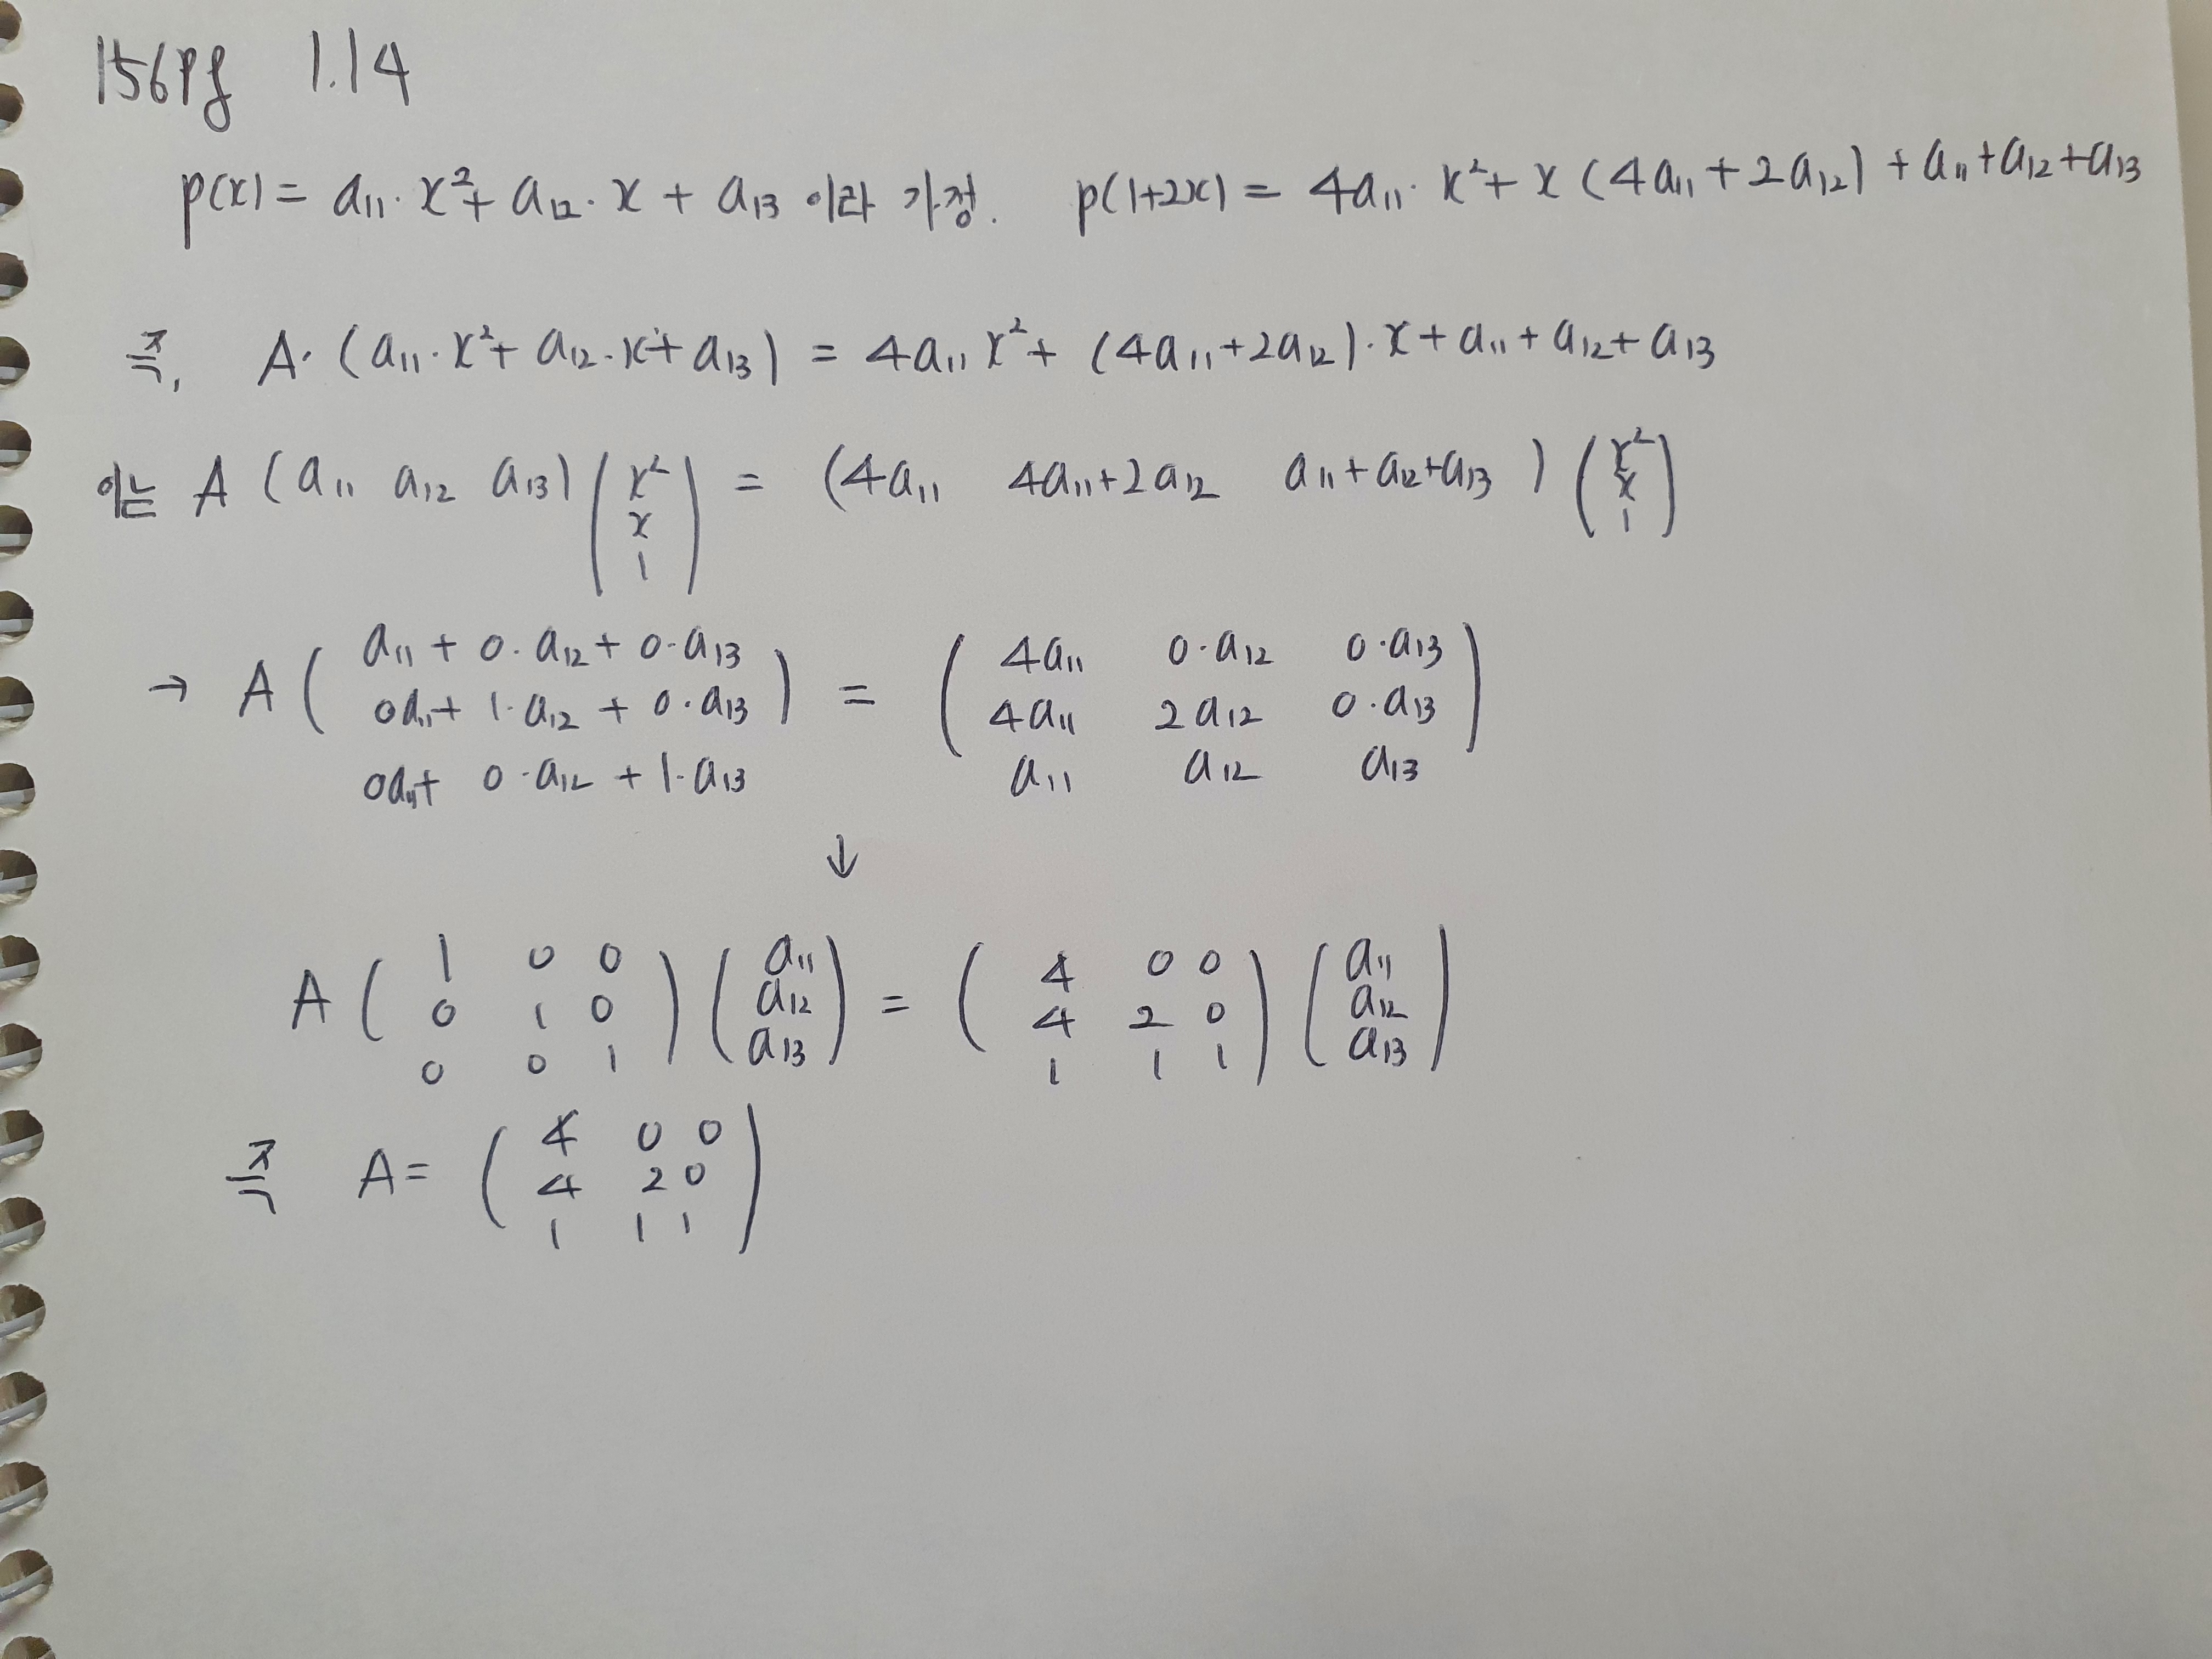 156pg 1.14
p(x) = a₁₁·x² + a₁₂·x + a₁₃ 이라 가정. p(1+2x) = 4a₁₁·x² + x(4a₁₁+2a₁₂) + a₁₁+a₁₂+a₁₃
즉, A·(a₁₁·x² + a₁₂·x + a₁₃) = 4a₁₁x² + (4a₁₁+2a₁₂)·x + a₁₁ + a₁₂ + a₁₃
이는 A (a₁₁ a₁₂ a₁₃) (x² x 1) = (4a₁₁ 4a₁₁+2a₁₂ a₁₁+a₁₂+a₁₃) (x² x 1)
→ A ( a₁₁ + 0·a₁₂ + 0·a₁₃ ) = ( 4a₁₁ 0·a₁₂ 0·a₁₃ )
0a₁₁ + 1·a₁₂ + 0·a₁₃ 4a₁₁ 2a₁₂ 0·a₁₃
0a₁₁ + 0·a₁₂ + 1·a₁₃ a₁₁ a₁₂ a₁₃
↓
1 0 0 a₁₁ 4 0 0 a₁₁
A ( 0 1 0 ) ( a₁₂ ) = ( 4 2 0 ) ( a₁₂ )
0 0 1 a₁₃ 1 1 1 a₁₃
4 0 0
즉 A = ( 4 2 0 )
1 1 1